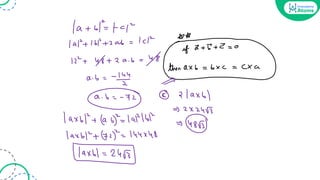 |a + b|² = |-c|²
|a|² + |b|² + 2ab = |c|²
12² + 48 + 2a.b = 48
a.b = -144/2
a.b = -72
|a×b|² + (a.b)² = |a|²|b|²
|a×b|² + (72)² = 144×48
|a×b| = 24√3
if a+b+c=0
then a×b = b×c = c×a
(c) 2|a×b|
⇒ 2×24√3
⇒ 48√3